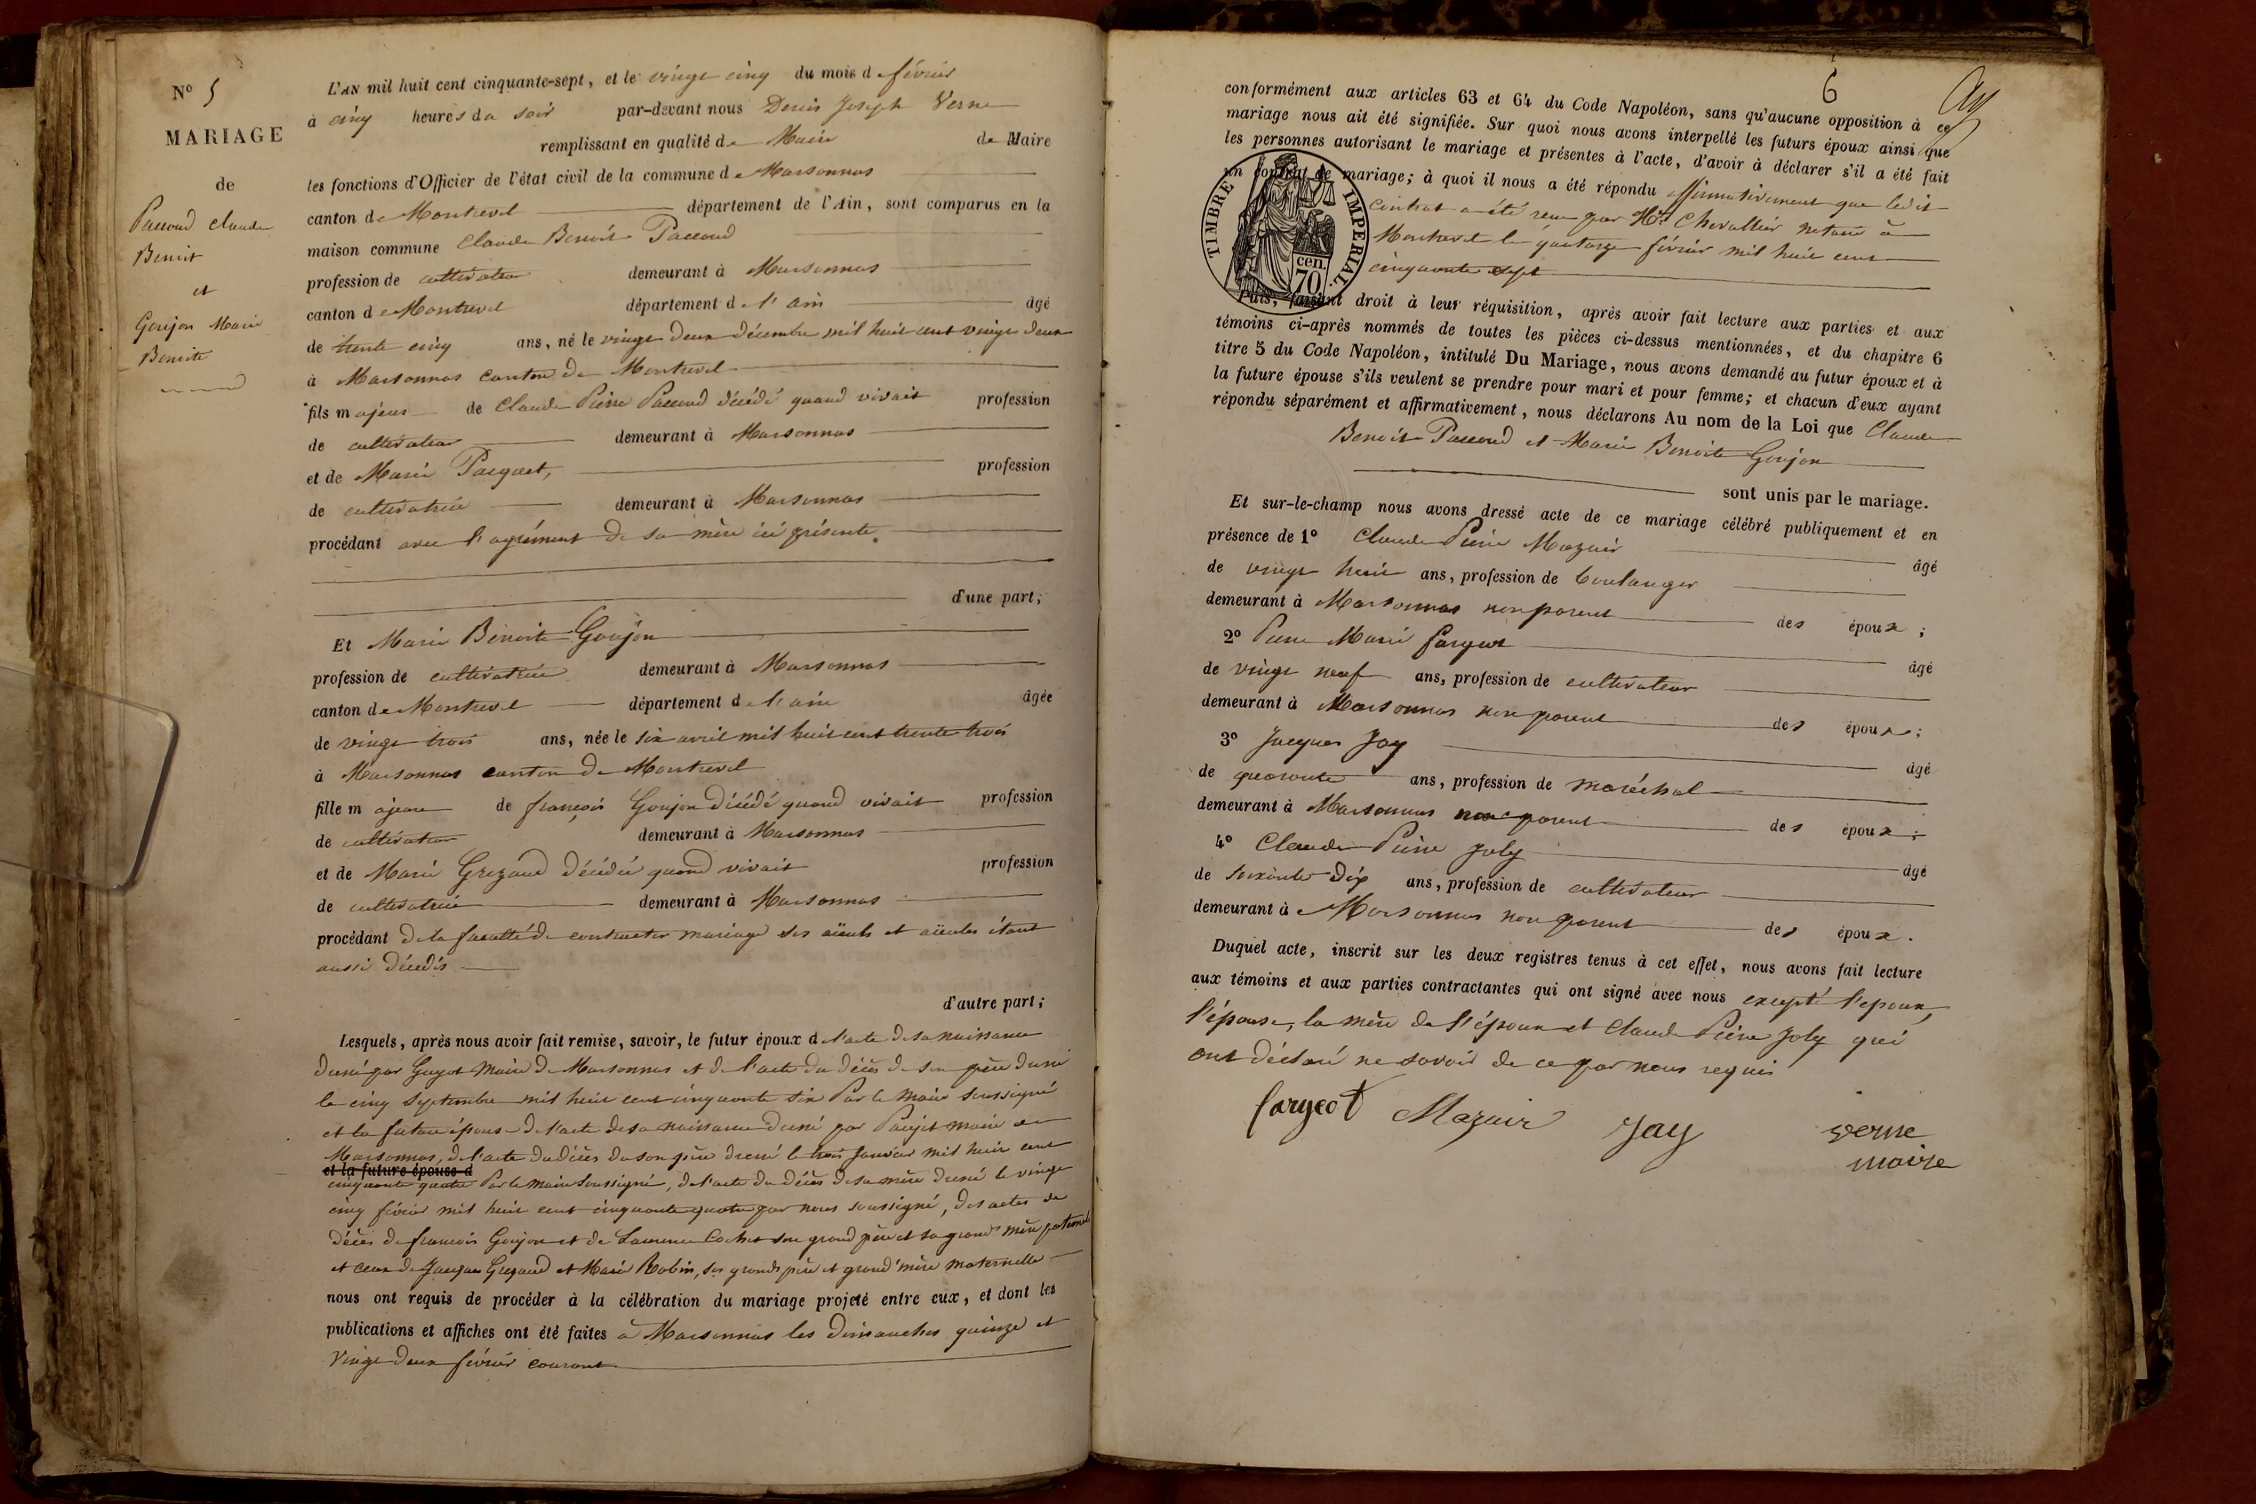 N° 5
MARIAGE
de
Paccoud Claude
Benoit
et
Goujon Marie
Benoite
L'AN mil huit cent cinquante-sept, et le vingt cinq du mois de février
à cinq heures du soir par-devant nous Denis Joseph Verne
remplissant en qualité de Maire de Maire
les fonctions d'Officier de l'état civil de la commune de Marsonnas
canton de Montrevel département de l'Ain, sont comparus en la
maison commune Claude Benoit Paccoud
profession de cultivateur demeurant à Marsonnas
canton de Montrevel département de l'ain âgé
de trente cinq ans, né le vingt deux décembre mil huit cent vingt deux
à Marsonnas canton de Montrevel
fils majeur de Claude Pierre Paccoud décédé quand vivait profession
de cultivateur demeurant à Marsonnas
et de Marie Parquet, profession
de cultivatrice demeurant à Marsonnas
procédant avec l'agrément de sa mère ici présente.
d'une part;
Et Marie Benoite Goujon
profession de cultivatrice demeurant à Marsonnas
canton de Montrevel département de l'ain âgée
de vingt trois ans, née le six avril mil huit cent trente trois
à Marsonnas canton de Montrevel
fille majeure de françois Goujon décédé quand vivait profession
de cultivateur demeurant à Marsonnas
et de Marie Grezaud décédée quand vivait profession
de cultivatrice demeurant à Marsonnas
procédant de la faculté de contracter mariage ses aïeuls et aïeules étant
aussi décédés
d'autre part;
Lesquels, après nous avoir fait remise, savoir, le futur époux de l'acte de sa naissance
dressé par Guyot maire de Marsonnas et de l'acte du décès de son père dressé
le cinq septembre mil huit cent cinquante six Par le maire soussigné
et la future épouse de l'acte de sa naissance dressé par Paujet maire de
Marsonnas, de l'acte du décès de son père dressé le trois janvier mil huit cent
et la future épouse d
cinquante quatre Par le maire soussigné, de l'acte du décès de sa mère dressé le vingt
cinq février mil huit cent cinquante quatre par nous soussigné, des actes de
décès de françois Goujon et de Laurence Cochet son grand père et sa grand mère paternels
et ceux de Jacques Grezaud et Marie Robin, ses grands père et grand'mère maternelle
nous ont requis de procéder à la célébration du mariage projeté entre eux, et dont les
publications et affiches ont été faites à Marsonnas les dimanches quinze et
vingt deux février courant
6
conformément aux articles 63 et 64 du Code Napoléon, sans qu'aucune opposition à ce
mariage nous ait été signifiée. Sur quoi nous avons interpellé les futurs époux ainsi que
les personnes autorisant le mariage et présentes à l'acte, d'avoir à déclarer s'il a été fait
un contrat de mariage; à quoi il nous a été répondu affirmativement que ledit
contrat a été reçu par Me Chevallier notaire à
Montrevel le quatorze février mil huit cent
cinquante sept
TIMBRE IMPERIAL.
cen.
70
Puis, faisant droit à leur réquisition, après avoir fait lecture aux parties et aux
témoins ci-après nommés de toutes les pièces ci-dessus mentionnées, et du chapitre 6
titre 5 du Code Napoléon, intitulé Du Mariage, nous avons demandé au futur époux et à
la future épouse s'ils veulent se prendre pour mari et pour femme; et chacun d'eux ayant
répondu séparément et affirmativement, nous déclarons Au nom de la Loi que Claude
Benoit Paccoud et Marie Benoite Goujon
sont unis par le mariage.
Et sur-le-champ nous avons dressé acte de ce mariage célébré publiquement et en
présence de 1° Claude Pierre Mazuir âgé
de vingt huit ans, profession de boulanger
demeurant à Marsonnas non parent des époux ;
2° Pierre Marie fargeot âgé
de vingt neuf ans, profession de cultivateur
demeurant à Marsonnas non parent des époux;
3° Jacques Jay âgé
de quarante ans, profession de maréchal
demeurant à Marsonnas non parent des époux ;
4° Claude Pierre Joly âgé
de soixante dix ans, profession de cultivateur
demeurant à Marsonnas non parent des époux.
Duquel acte, inscrit sur les deux registres tenus à cet effet, nous avons fait lecture
aux témoins et aux parties contractantes qui ont signé avec nous excepté l'époux,
l'épouse, la mère de l'époux et Claude Pierre Joly qui
ont déclaré ne savoir de ce par nous requis
fargeot Mazuir Jay verne
maire